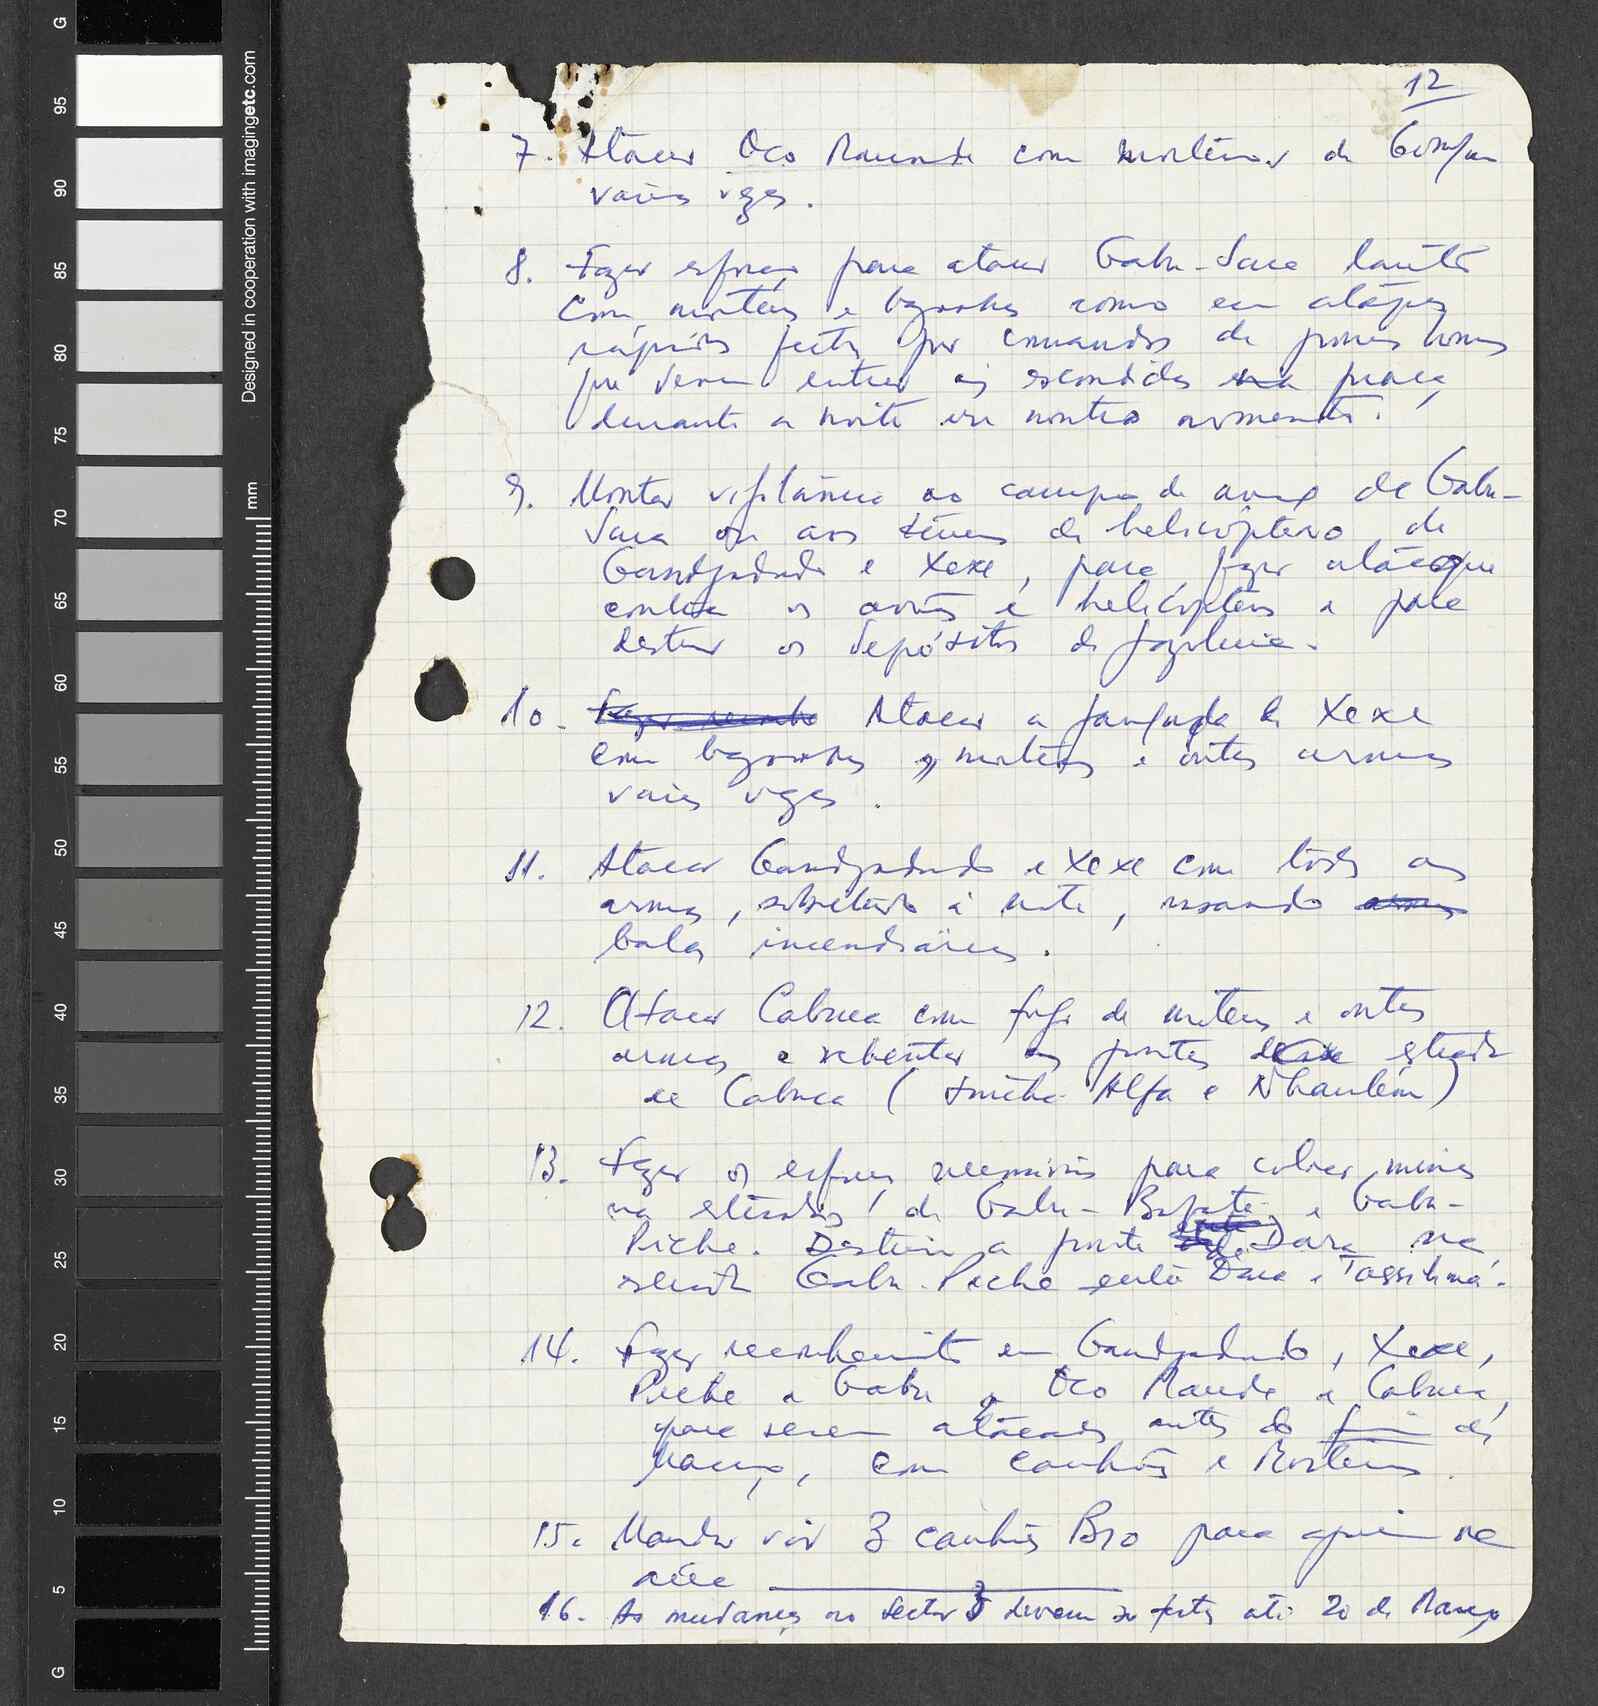 12
7. Atacar Oco Maunde com morteiros de
várias vezes.
8. Fazer esforços para atacar Gabu-Sara tanto
com morteiros e bazookas como em ataques
rápidos feitos por comandos de poucos homens
que devem entrar às escondidas na praça,
durante a noite ou noutro momento.
9. Montar vigilância ao campo de aviação de Gabu-
Sara ou aos de helicóptero de
Gandjadude e Xexe, para fazer ataque
contra os aviões e helicópteros e para
destruir os depósitos de gazolina.
10. Fazer Atacar a jangada de Xexe
com bazookas, morteiros e outras armas
várias vezes.
11. Atacar Gandjadude e Xexe com todas as
armas, sobretudo à noite, usando armas
balas incendiárias.
12. Atacar Cabuca com fogo de morteiros e outras
armas e rebentar as pontes estrada
de Cabuca ( Alfa e Nhaulem)
13. Fazer os esforços necessários para colocar minas
nas estradas de Gabu-Bafatá e Gabu-
Piche. Destruir a ponte de Dara na
estrada Gabu-Piche entre Dara e
14. Fazer reconhecimento em Gandjadude, Xexe,
Piche e Gabu, Oco Maunde e Cabuca,
para serem atacados antes do fim de
Março, com canhões e Morteiros.
15. Mandar vir 3 canhões B10 para na
área
16. As mudanças no Sector 3 devem ser feitas até 20 de Março
Designed in cooperation with imagingetc.com
mm
G
95
90
85
80
75
70
65
60
55
50
45
40
35
30
25
20
15
10
5
G